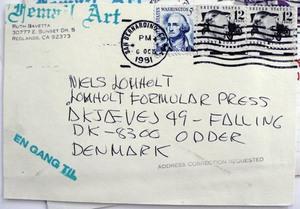 Femail Art-
RUTH BAVETTA
30777 E. SUNSET DR. S
REDLANDS, CA 92373
SAN BERNARDINO, CA
PM
6 OCT
1991
UNITED STATES
12
UNITED STATES
12
NIELS LOMHOLT
LOMHOLT FORMULAR PRESS
DK-8300 ODDER
DENMARK
EN GANG TIL
ADDRESS CORRECTION REQUESTED